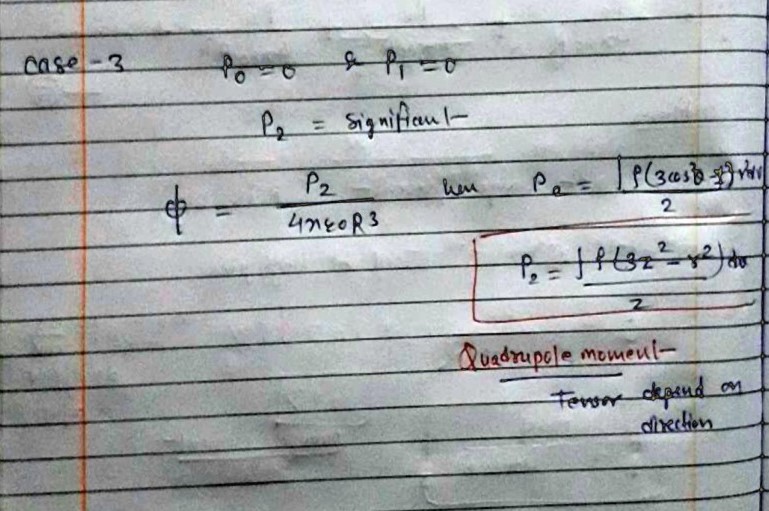 case - 3 P₀ = 0 & P₁ = 0
P₂ = Significant
ϕ = P₂ / 4πε₀R³ P = ∫ρ(3cos²θ - ) r²dv / 2
P₂ = ∫ρ(3z² - r²) dv / 2
Quadrupole moment
Tensor depend on
direction